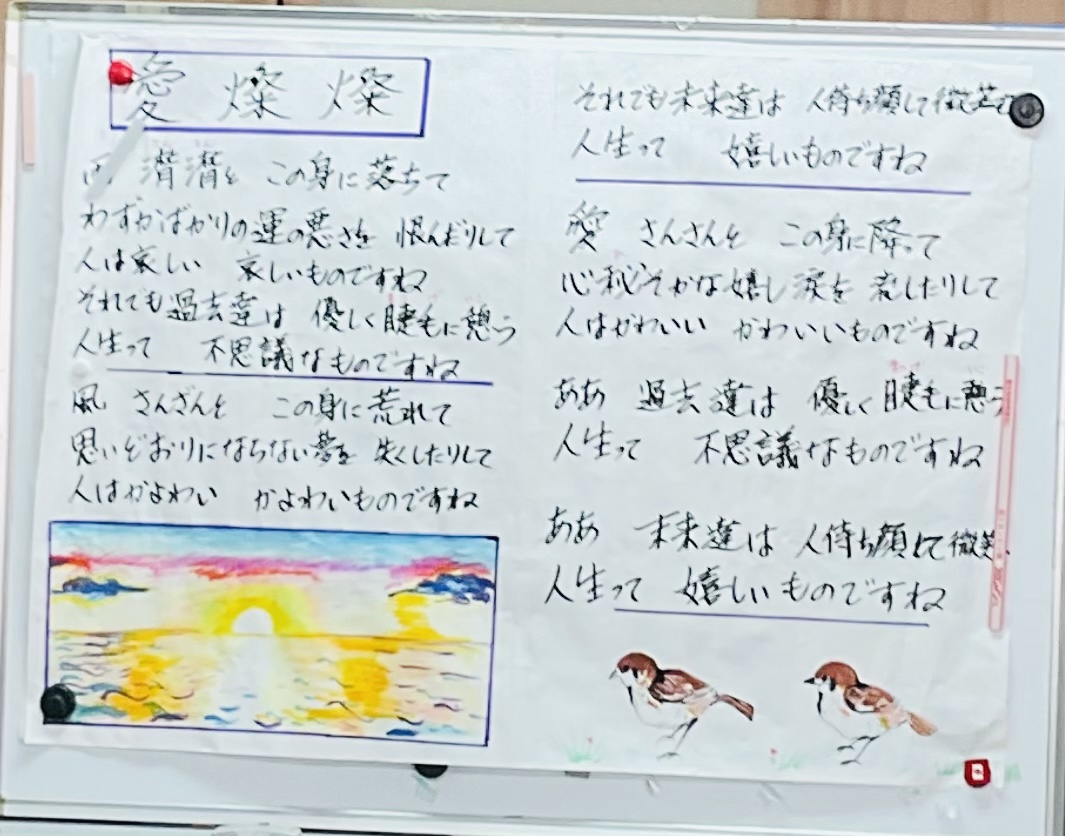 愛 燦 燦
雨 潸潸と この身に落ちて
わずかばかりの運の悪さを 恨んだりして
人は哀しい 哀しいものですね
それでも過去達は 優しく睫毛に憩う
人生って 不思議なものですね
風 さんざんと この身に荒れて
思いどおりにならない夢を 失くしたりして
人はかよわい かよわいものですね
それでも未来達は 人待ち顔して微笑む
人生って 嬉しいものですね
愛 さんさんと この身に降って
心秘そかな嬉し涙を 流したりして
人はかわいい かわいいものですね
ああ 過去達は 優しく睫毛に憩う
人生って 不思議なものですね
ああ 未来達は 人待ち顔して微笑
人生って 嬉しいものですね